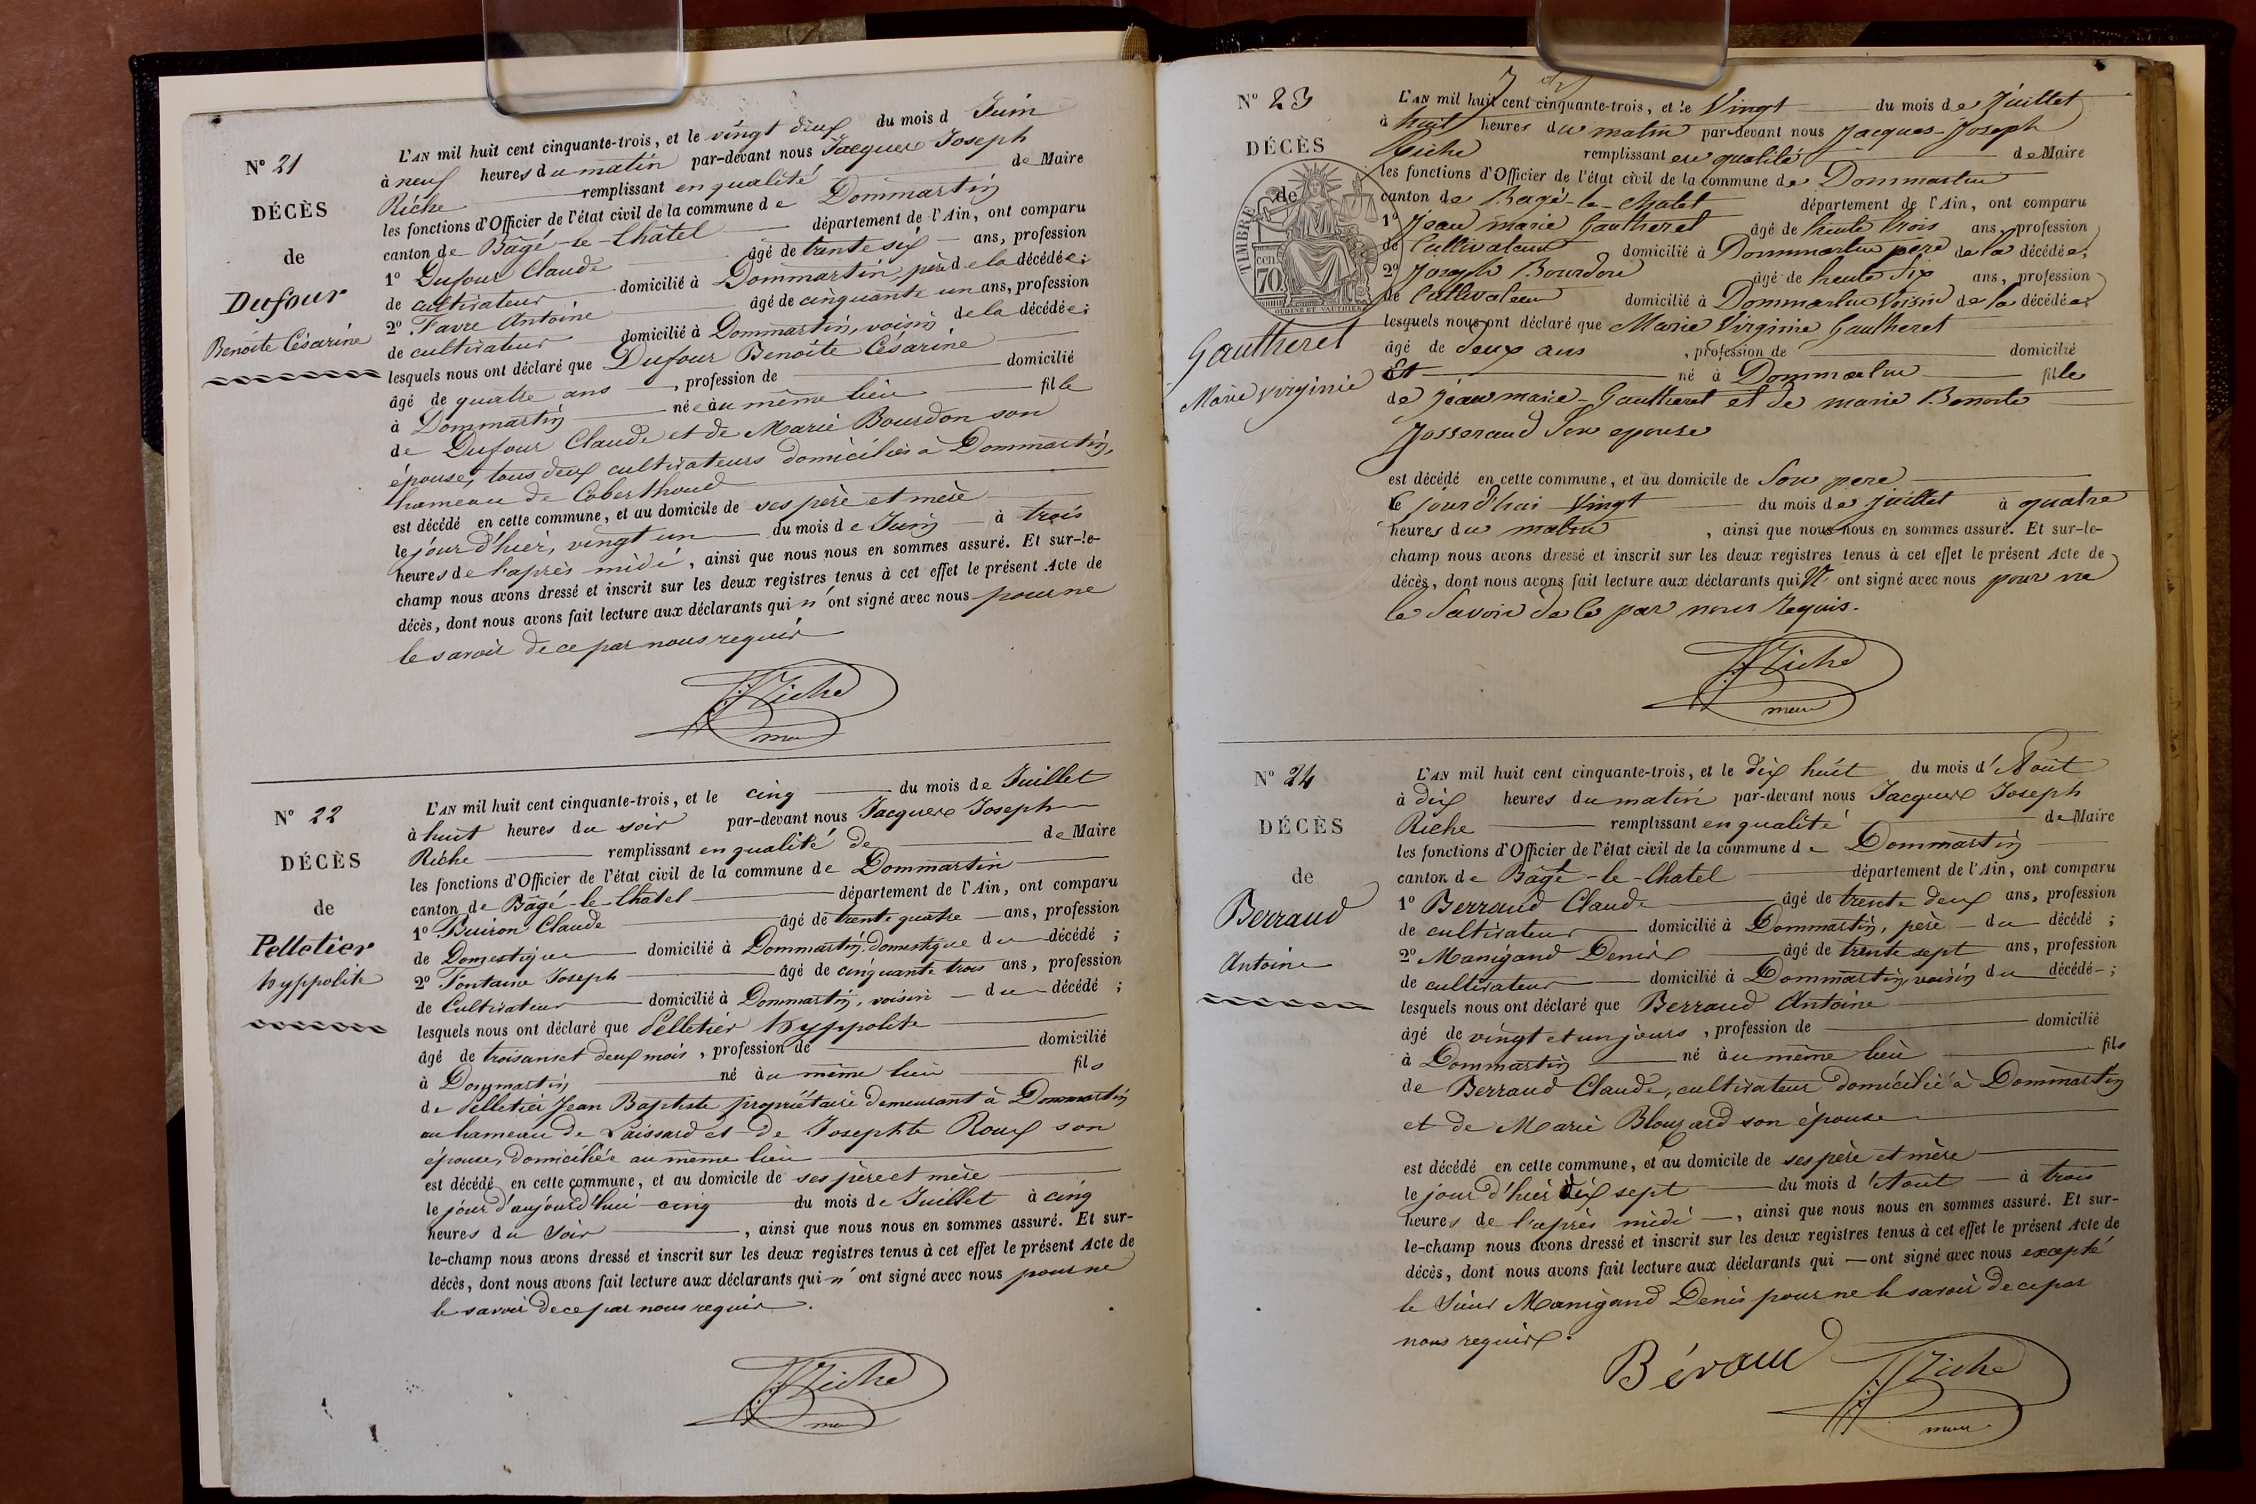 N° 21
DÉCÈS
de
Dufour
Benoite Césarine
L'AN mil huit cent cinquante-trois, et le vingt deux du mois d Juin
à neuf heures du matin par-devant nous Jacques Joseph
Riche remplissant en qualité de Maire
les fonctions d'Officier de l'état civil de la commune de Dommartin
canton de Bâgé-le-Châtel département de l'Ain, ont comparu
1° Dufour Claude âgé de trente six ans, profession
de cultivateur domicilié à Dommartin, père de la décédée;
2° Favre Antoine âgé de cinquante un ans, profession
de cultivateur domicilié à Dommartin, voisin de la décédée;
lesquels nous ont déclaré que Dufour Benoite Césarine
âgé de quatre ans, profession de domicilié
à Dommartin née au même lieu fille
de Dufour Claude et de Marie Bourdon son
épouse, tous deux cultivateurs domiciliés à Dommartin,
hameau de Coberthoud
est décédé en cette commune, et au domicile de ses père et mère
le jour d'hier, vingt un du mois de Juin à trois
heures de l'après midi, ainsi que nous nous en sommes assuré. Et sur-le-
champ nous avons dressé et inscrit sur les deux registres tenus à cet effet le présent Acte de
décès, dont nous avons fait lecture aux déclarants qui n'ont signé avec nous pour ne
le savoir de ce par nous requis
JJ Riche
maire
N° 22
DÉCÈS
de
Pelletier
hyppolite
L'AN mil huit cent cinquante-trois, et le cinq du mois de Juillet
à huit heures du soir par-devant nous Jacques Joseph
Riche remplissant en qualité de de Maire
les fonctions d'Officier de l'état civil de la commune de Dommartin
canton de Bâgé-le-Châtel département de l'Ain, ont comparu
1° Buiron Claude âgé de trente quatre ans, profession
de Domestique domicilié à Dommartin, domestique du décédé;
2° Fontaine Joseph âgé de cinquante trois ans, profession
de Cultivateur domicilié à Dommartin, voisin du décédé;
lesquels nous ont déclaré que Pelletier hyppolite
âgé de trois ans et deux mois, profession de domicilié
à Dommartin né au même lieu fils
de Pelletier Jean Baptiste propriétaire demeurant à Dommartin
au hameau de Loissard et de Josephte Roux son
épouse, domiciliée au même lieu
est décédé en cette commune, et au domicile de ses père et mère
le jour d'aujourd'hui cinq du mois de Juillet à cinq
heures du soir, ainsi que nous nous en sommes assuré. Et sur-
le-champ nous avons dressé et inscrit sur les deux registres tenus à cet effet le présent Acte de
décès, dont nous avons fait lecture aux déclarants qui n'ont signé avec nous pour ne
le savoir de ce par nous requis.
JJ Riche
maire
N° 23
DÉCÈS
de
TIMBRE
70 cen
OUDINE ET VAUTHIER
Gautheret
Marie Virginie
L'AN mil huit cent cinquante-trois, et le Vingt du mois de Juillet
à huit heures du matin par-devant nous Jacques-Joseph
Riche remplissant en qualité de Maire
les fonctions d'Officier de l'état civil de la commune de Dommartin
canton de Bagé-le-Chatel département de l'Ain, ont comparu
1° Jean marie Gautheret âgé de trente trois ans, profession
de Cultivateur domicilié à Dommartin père de la décédée;
2° Joseph Bourdon âgé de trente six ans, profession
de Cultivateur domicilié à Dommartin Voisin de la décédée;
lesquels nous ont déclaré que Marie Virginie Gautheret
âgé de deux ans, profession de domicilié
Et né à Dommartin fille
de Jean marie-Gautheret et de marie Benoite
Josserand Son epouse
est décédé en cette commune, et au domicile de Son pere
le jourd'hui Vingt du mois de Juillet à quatre
heures du matin, ainsi que nous nous en sommes assuré. Et sur-le-
champ nous avons dressé et inscrit sur les deux registres tenus à cet effet le présent Acte de
décès, dont nous avons fait lecture aux déclarants qui N' ont signé avec nous pour ne
le Savoir de Ce par nous Requis.
JJ Riche
maire
N° 24
DÉCÈS
de
Berraud
Antoine
L'AN mil huit cent cinquante-trois, et le dix huit du mois d'Aout
à dix heures du matin par-devant nous Jacques Joseph
Riche remplissant en qualité de Maire
les fonctions d'Officier de l'état civil de la commune de Dommartin
canton de Bâgé-le-Chatel département de l'Ain, ont comparu
1° Berraud Claude âgé de trente deux ans, profession
de cultivateur domicilié à Dommartin, père du décédé;
2° Manigand Denis âgé de trente sept ans, profession
de cultivateur domicilié à Dommartin, voisin du décédé;
lesquels nous ont déclaré que Berraud Antoine
âgé de vingt et un jours, profession de domicilié
à Dommartin né au même lieu fils
de Berraud Claude, cultivateur domicilié à Dommartin
et de Marie Blouzard son épouse
est décédé en cette commune, et au domicile de ses père et mère
le jour d'hier dix sept du mois d'Aout à trois
heures de l'après midi, ainsi que nous nous en sommes assuré. Et sur-
le-champ nous avons dressé et inscrit sur les deux registres tenus à cet effet le présent Acte de
décès, dont nous avons fait lecture aux déclarants qui ont signé avec nous excepté
le Sieur Manigand Denis pour ne le savoir de ce par
nous requis.
Béraud
JJ Riche
maire